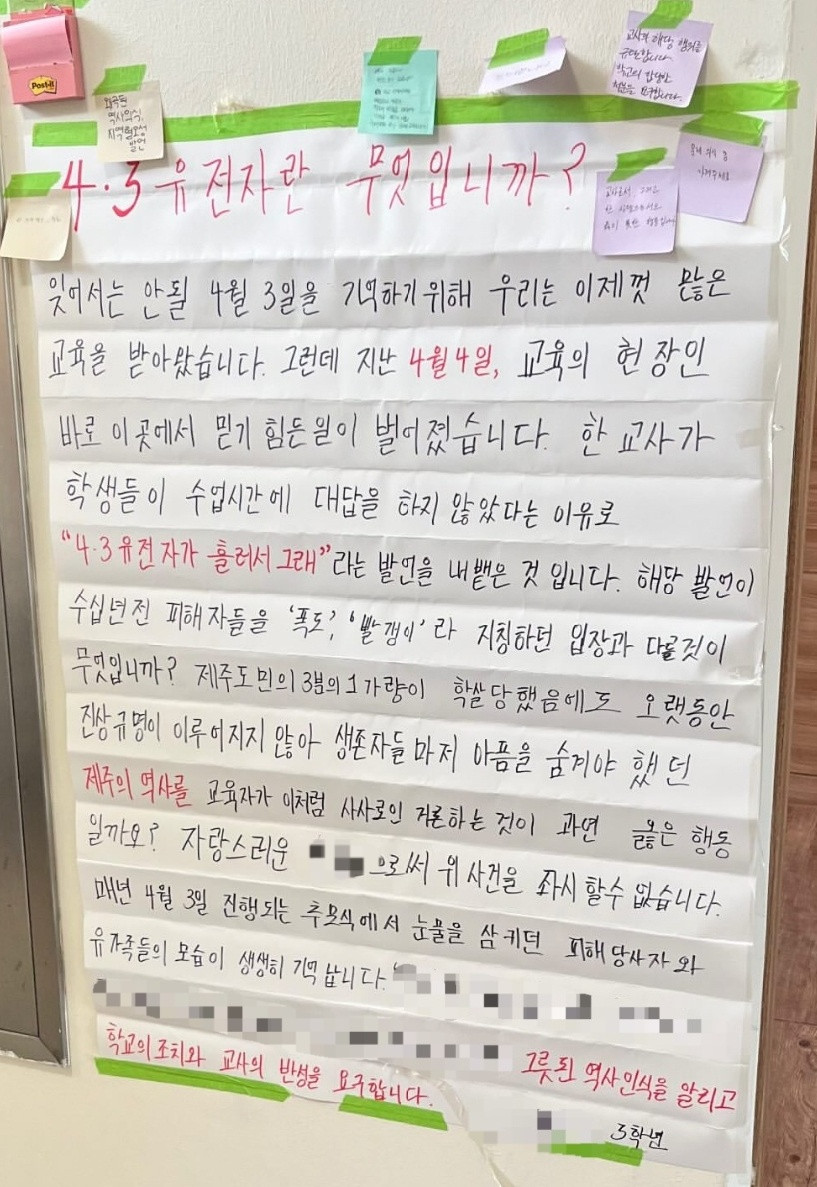 Post-it
왜곡된
역사의식,
지역혐오성
발언
교사가 해당 행위를
규탄합니다.
4·3 유전자란 무엇입니까?
잊어서는 안될 4월 3일을 기억하기 위해 우리는 이제껏 많은
교육을 받아왔습니다. 그런데 지난 4월 4일, 교육의 현장인
바로 이 곳에서 믿기 힘든 일이 벌어졌습니다. 한 교사가
학생들이 수업시간에 대답을 하지 않았다는 이유로
“4·3 유전자가 흘러서 그래”라는 발언을 내뱉은 것 입니다. 해당 발언이
수십년 전 피해자들을 ‘폭도’, ‘빨갱이’라 지칭하던 입장과 다를것이
무엇입니까? 제주도민의 3분의 1 가량이 학살당했음에도 오랫동안
진상규명이 이루어지지 않아 생존자들마저 아픔을 숨겨야 했던
제주의 역사를 교육자가 이처럼 사사로이 거론하는 것이 과연 옳은 행동
일까요? 자랑스러운 으로써 위 사건을 좌시 할수 없습니다.
매년 4월 3일 진행되는 추모식에서 눈물을 삼키던 피해당사자와
유가족들의 모습이 생생히 기억 납니다.
그릇된 역사인식을 알리고
학교의 조치와 교사의 반성을 요구합니다.
3학년